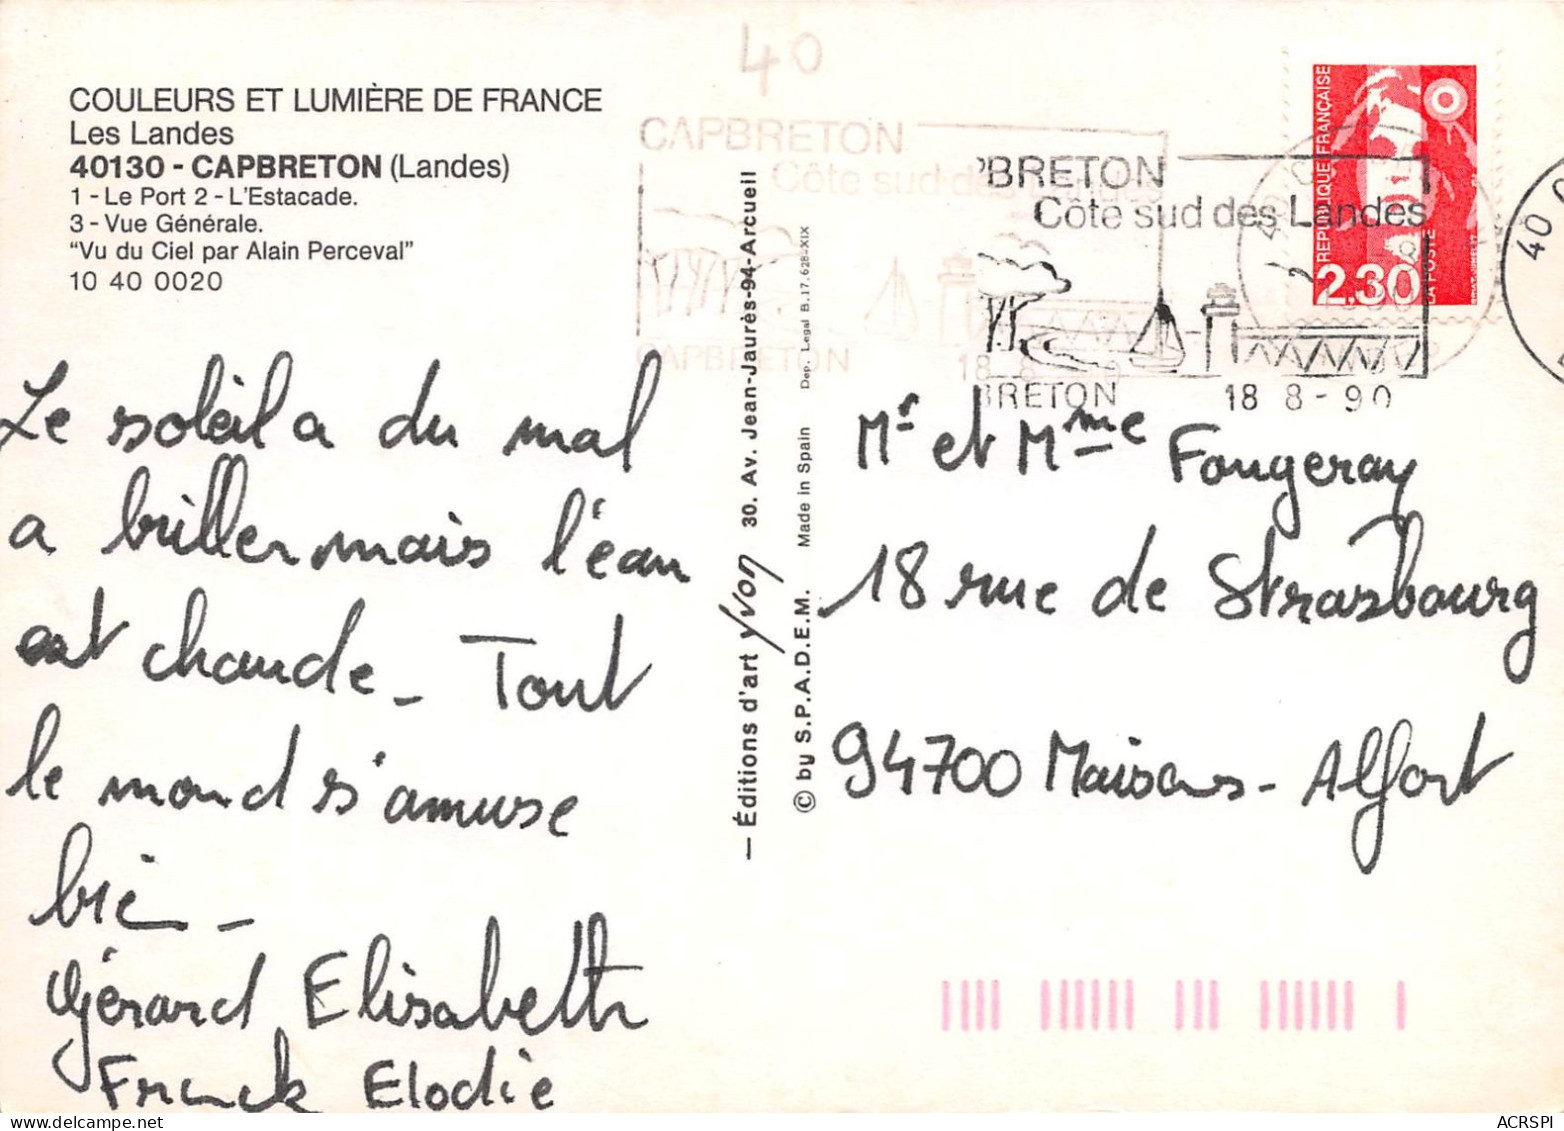 40
COULEURS ET LUMIÈRE DE FRANCE
Les Landes
40130 - CAPBRETON (Landes)
1 - Le Port 2 - L'Estacade.
3 - Vue Générale.
"Vu du Ciel par Alain Perceval"
10 40 0020
Le soleil a du mal
a briller mais l'éau
est chaude - Tout
le mond s'amuse
bie -
Gérard Elisabeth
Franck Elodie
— Éditions d'art yvon 30. Av. Jean-Jaurès-94-Arcueil
© by S.P.A.D.E.M. Made in Spain Dep. Legal B.17.628-XIX
CAPBRETON
Côte sud des Landes
CAPBRETON 18 8 - 90
PBRETON
Côte sud des Landes
BRETON 18 8 - 90
RÉPUBLIQUE FRANÇAISE
2,30
LA POSTE
40 C
Mr et Mme Fougeray
18 rue de Strasbourg
94700 Maisons - Alfort
ACRSPI